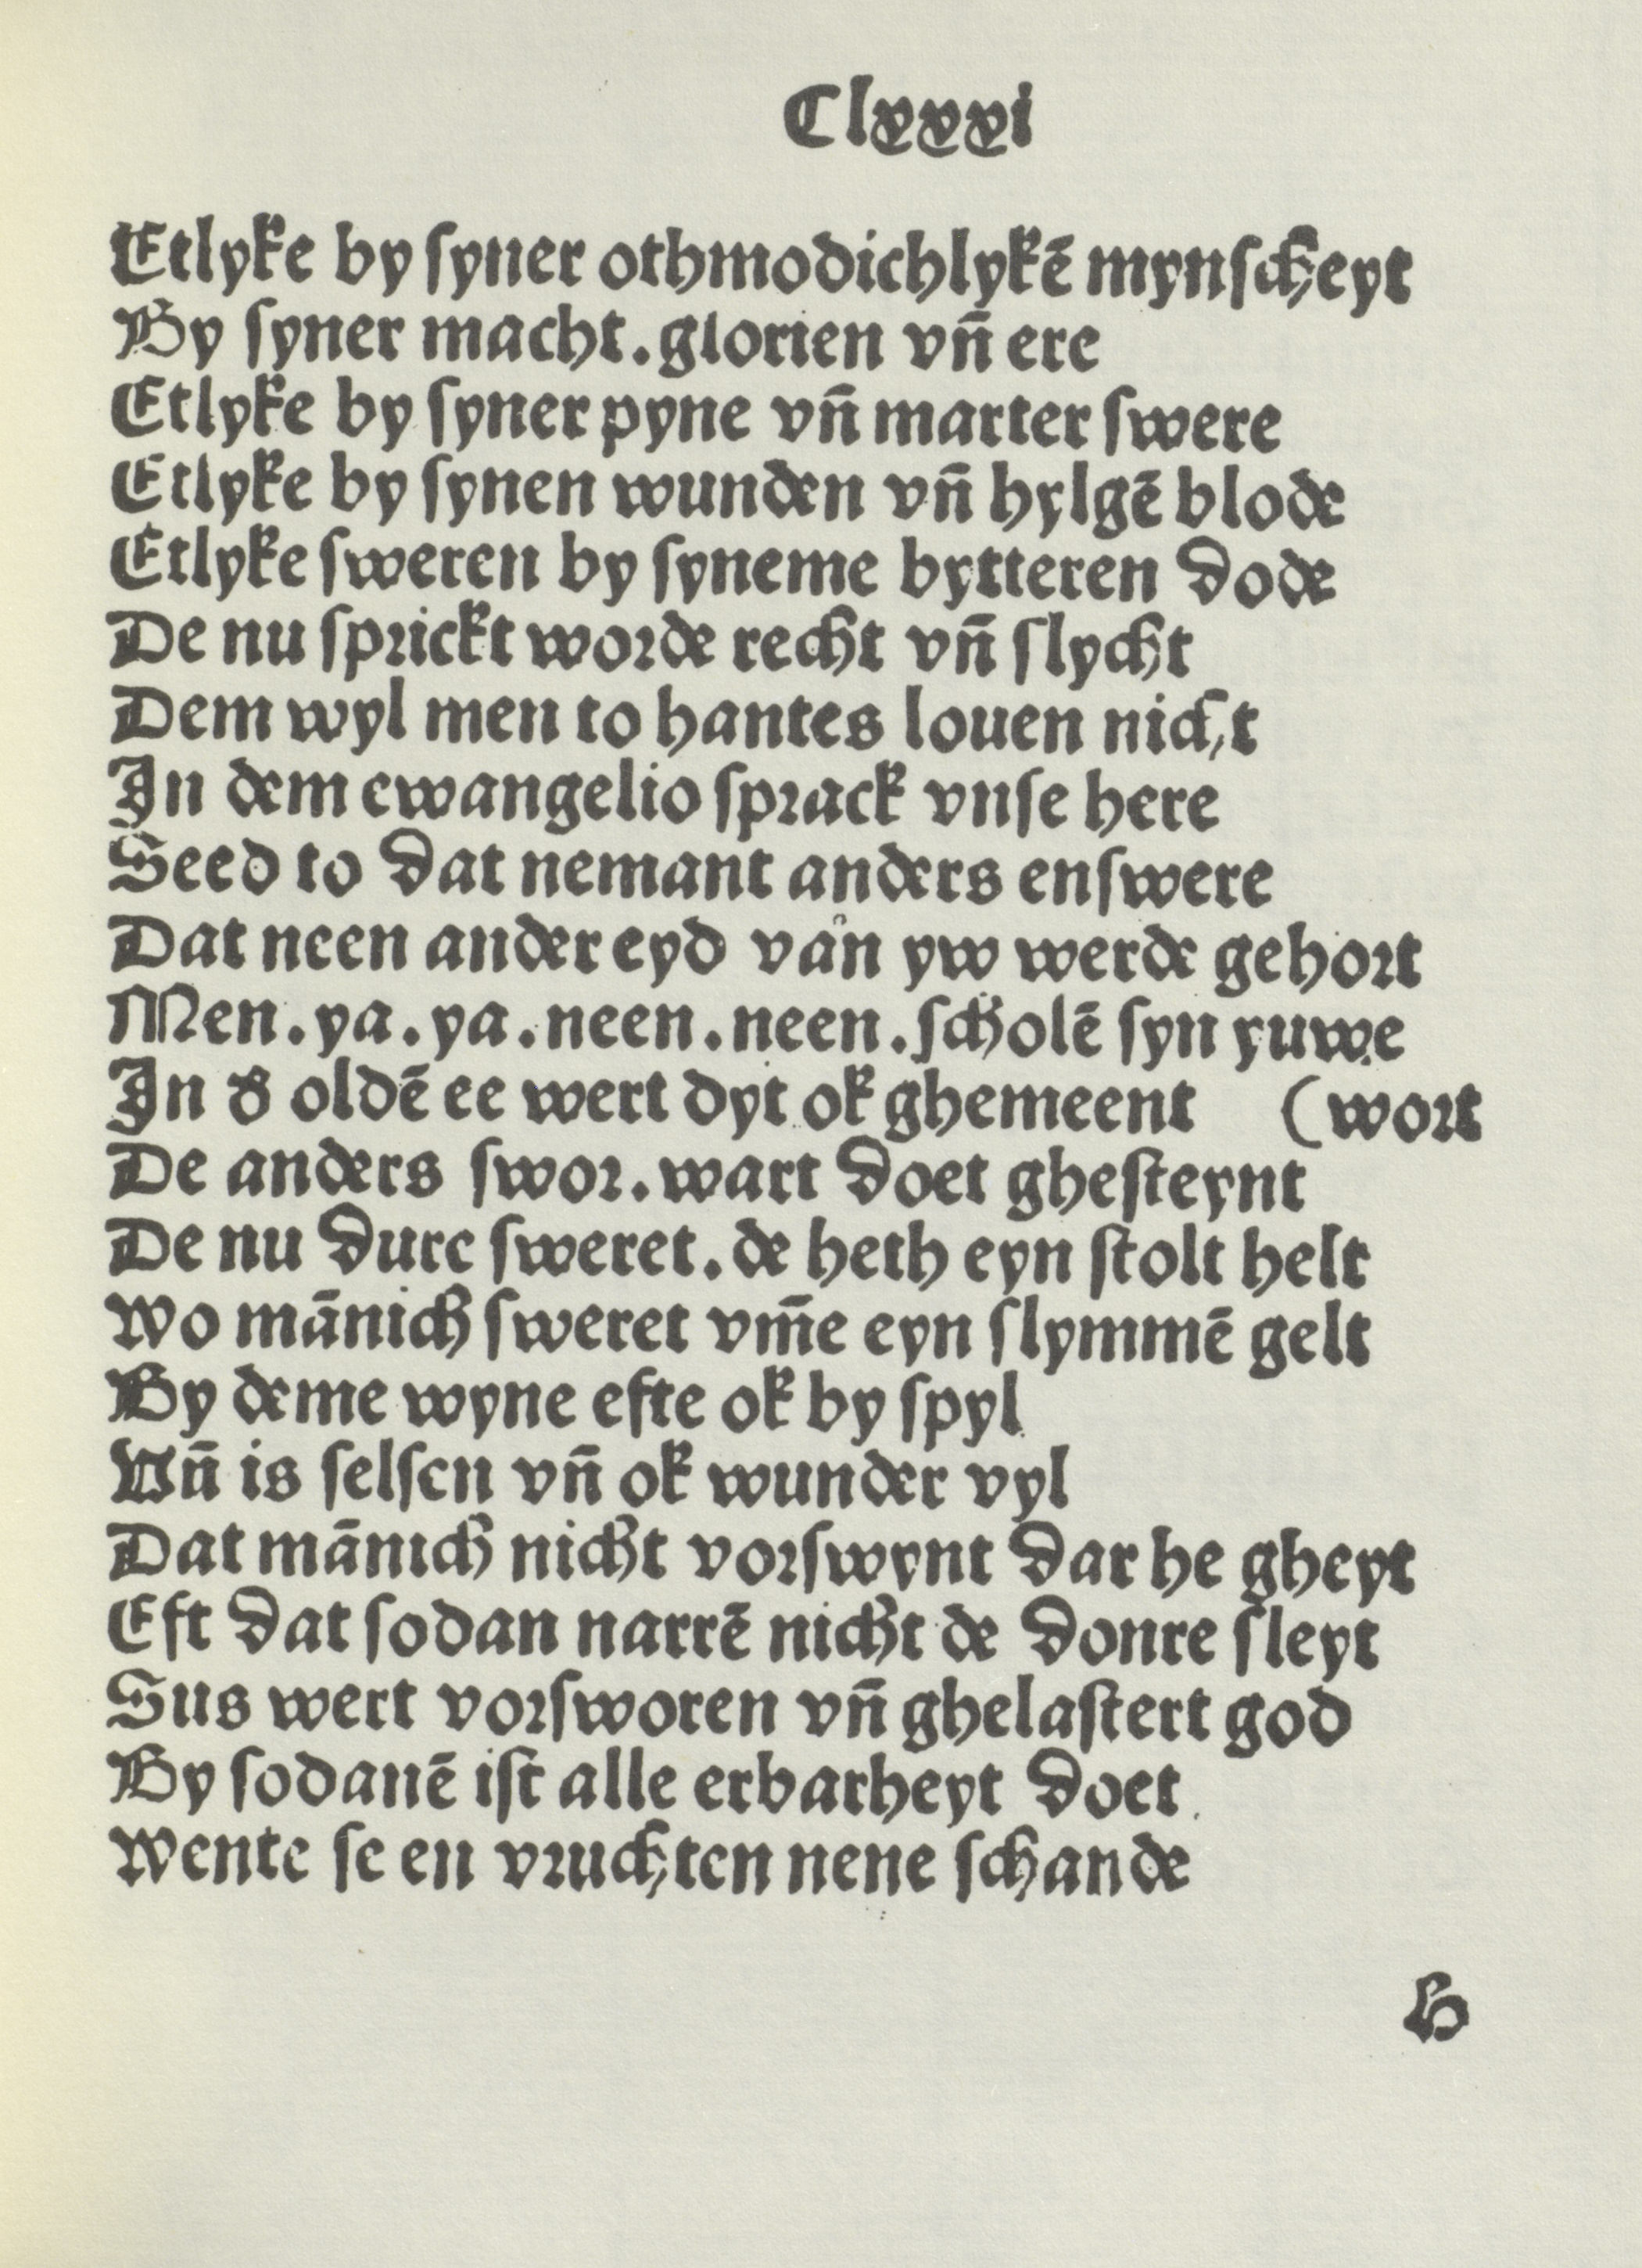 Clxxxi
Etlyke by ſyner othmodichlykē mynſcheyt
By ſyner macht. glorien vn̄ ere
Etlyke by ſyner pyne vn̄ marter ſwere
Etlyke by ſynen wunden vn̄ hylgē blode
Etlyke ſweren by ſyneme bytteren dode
De nu ſprickt worde recht vn̄ ſlycht
Dem wyl men to hantes louen nicht
In dem ewangelio ſprack vnſe here
Seed to dat nemant anders enſwere
Dat neen ander eyd van yw werde gehort
Men. ya. ya. neen. neen. ſcholē ſyn yuwe
In đ oldē ee wert dyt ok ghemeent (wort
De anders ſwor. wart doet gheſteynt
De nu dure ſweret. de heth eyn ſtolt helt
Wo mānich ſweret vm̄e eyn ſlymmē gelt
By deme wyne efte ok by ſpyl
Vn̄ is ſelſen vn̄ ok wunder vyl
Dat mānich nicht vorſwynt dar he gheyt
Eft dat ſodan narrē nicht de donre ſleyt
Sus wert vorſworen vn̄ ghelaſtert god
By ſodanē iſt alle erbarheyt doet
Wente ſe en vruchten nene ſchande